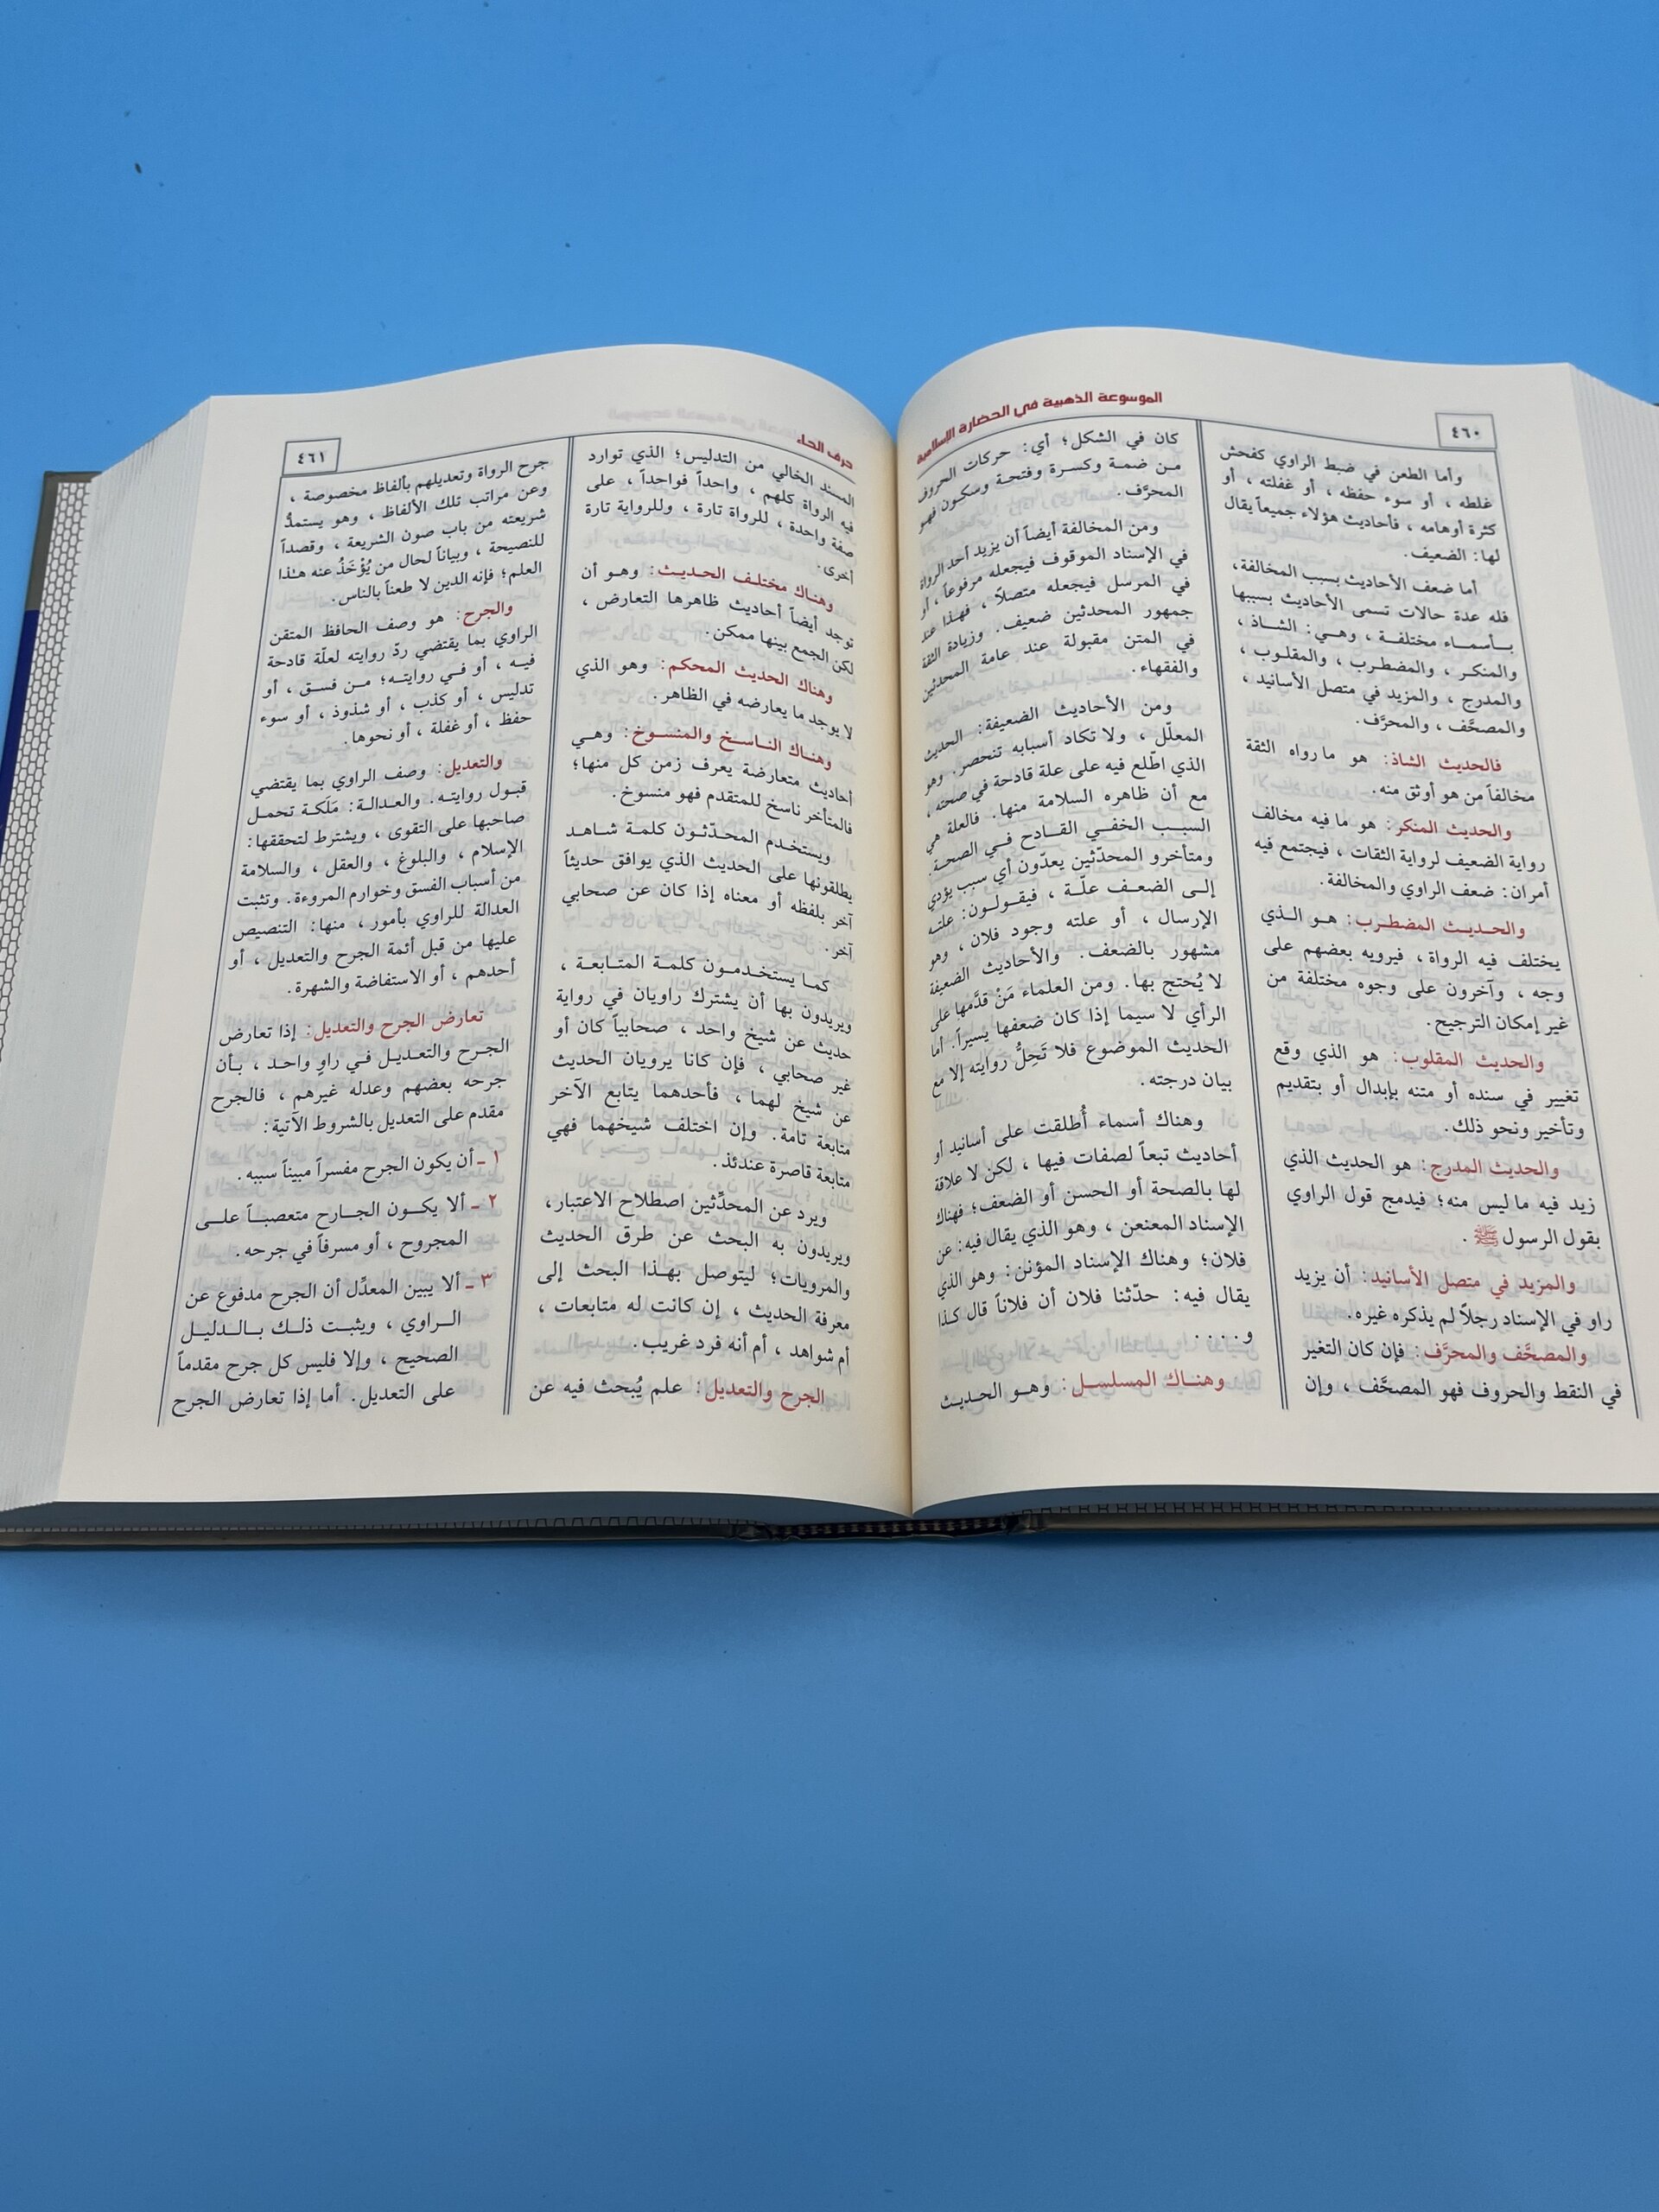 ٤٦٠
الموسوعة الذهبية في الحضارة الإسلامية
وأما الطعن في ضبط الراوي كفحش
غلطه ، أو سوء حفظه ، أو غفلته ، أو
كثرة أوهامه ، فأحاديث هؤلاء جميعاً يقال
لها: الضعيف.
أما ضعف الأحاديث بسبب المخالفة،
فله عدة حالات تسمى الأحاديث بسببها
بأسماء مختلفة ، وهي: الشاذ ،
والمنكر ، والمضطرب ، والمقلوب ،
والمدرج ، والمزيد في متصل الأسانيد ،
والمصحَّف ، والمحرَّف.
فالحديث الشاذ: هو ما رواه الثقة
مخالفاً من هو أوثق منه.
والحديث المنكر: هو ما فيه مخالف
رواية الضعيف لرواية الثقات ، فيجتمع فيه
أمران: ضعف الراوي والمخالفة.
والحديث المضطرب: هو الذي
يختلف فيه الرواة ، فيرويه بعضهم على
وجه ، وآخرون على وجوه مختلفة من
غير إمكان الترجيح.
والحديث المقلوب: هو الذي وقع
تغيير في سنده أو متنه بإبدال أو بتقديم
وتأخير ونحو ذلك.
والحديث المدرج: هو الحديث الذي
زيد فيه ما ليس منه؛ فيدمج قول الراوي
بقول الرسول ﷺ .
والمزيد في متصل الأسانيد: أن يزيد
راو في الإسناد رجلاً لم يذكره غيره.
والمصحَّف والمحرَّف: فإن كان التغير
في النقط والحروف فهو المصحَّف ، وإن
كان في الشكل؛ أي: حركات الحروف
من ضمة وكسرة وفتحة وسكون فهو
المحرَّف.
ومن المخالفة أيضاً أن يزيد أحد الرواة
في الإسناد الموقوف فيجعله مرفوعاً ، أو
في المرسل فيجعله متصلاً ، فهذا عند
جمهور المحدثين ضعيف. وزيادة الثقة
في المتن مقبولة عند عامة المحدثين
والفقهاء.
ومن الأحاديث الضعيفة: الحديث
المعلّل ، ولا تكاد أسبابه تنحصر. وهو
الذي اطّلع فيه على علة قادحة في صحته،
مع أن ظاهره السلامة منها. فالعلة هي
السبب الخفي القادح في الصحة.
ومتأخرو المحدّثين يعدّون أي سبب يؤدي
إلى الضعف علّة ، فيقولون: علته
الإرسال ، أو علته وجود فلان ، وهو
مشهور بالضعف. والأحاديث الضعيفة
لا يُحتج بها. ومن العلماء مَنْ قدَّمها على
الرأي لا سيما إذا كان ضعفها يسيراً. أما
الحديث الموضوع فلا تَحِلُّ روايته إلا مع
بيان درجته.
وهناك أسماء أُطلقت على أسانيد أو
أحاديث تبعاً لصفات فيها ، لكن لا علاقة
لها بالصحة أو الحسن أو الضعف؛ فهناك
الإسناد المعنعن ، وهو الذي يقال فيه: عن
فلان؛ وهناك الإسناد المؤنن: وهو الذي
يقال فيه: حدّثنا فلان أن فلاناً قال كذا
و....
وهناك المسلسل: وهو الحديث
حرف الحاء
٤٦١
المسند الخالي من التدليس؛ الذي توارد
فيه الرواة كلهم ، واحداً فواحداً ، على
صفة واحدة ، للرواة تارة ، وللرواية تارة
أخرى.
وهناك مختلف الحديث: وهو أن
توجد أيضاً أحاديث ظاهرها التعارض ،
لكن الجمع بينها ممكن.
وهناك الحديث المحكم: وهو الذي
لا يوجد ما يعارضه في الظاهر.
وهناك الناسخ والمنسوخ: وهي
أحاديث متعارضة يعرف زمن كل منها؛
فالمتأخر ناسخ للمتقدم فهو منسوخ.
ويستخدم المحدّثون كلمة شاهد
يطلقونها على الحديث الذي يوافق حديثاً
آخر بلفظه أو معناه إذا كان عن صحابي
آخر.
كما يستخدمون كلمة المتابعة ،
ويريدون بها أن يشترك راويان في رواية
حديث عن شيخ واحد ، صحابياً كان أو
غير صحابي ، فإن كانا يرويان الحديث
عن شيخ لهما ، فأحدهما يتابع الآخر
متابعة تامة. وإن اختلف شيخهما فهي
متابعة قاصرة عندئذ.
ويرد عن المحدِّثين اصطلاح الاعتبار،
ويريدون به البحث عن طرق الحديث
والمرويات؛ ليتوصل بهذا البحث إلى
معرفة الحديث ، إن كانت له متابعات ،
أم شواهد ، أم أنه فرد غريب.
الجرح والتعديل: علم يُبحث فيه عن
جرح الرواة وتعديلهم بألفاظ مخصوصة ،
وعن مراتب تلك الألفاظ ، وهو يستمدُّ
شريعته من باب صون الشريعة ، وقصداً
للنصيحة ، وبياناً لحال من يُؤْخَذُ عنه هذا
العلم؛ فإنه الدين لا طعناً بالناس.
والجرح: هو وصف الحافظ المتقن
الراوي بما يقتضي ردّ روايته لعلّة قادحة
فيه ، أو في روايته؛ من فسق ، أو
تدليس ، أو كذب ، أو شذوذ ، أو سوء
حفظ ، أو غفلة ، أو نحوها.
والتعديل: وصف الراوي بما يقتضي
قبول روايته. والعدالة: مَلَكة تحمل
صاحبها على التقوى ، ويشترط لتحققها:
الإسلام ، والبلوغ ، والعقل ، والسلامة
من أسباب الفسق وخوارم المروءة. وتثبت
العدالة للراوي بأمور ، منها: التنصيص
عليها من قبل أئمة الجرح والتعديل ، أو
أحدهم ، أو الاستفاضة والشهرة.
تعارض الجرح والتعديل: إذا تعارض
الجرح والتعديل في راوٍ واحد ، بأن
جرحه بعضهم وعدله غيرهم ، فالجرح
مقدم على التعديل بالشروط الآتية:
١ ـ أن يكون الجرح مفسراً مبيناً سببه.
٢ ـ ألا يكون الجارح متعصباً على
المجروح ، أو مسرفاً في جرحه.
٣ ـ ألا يبين المعدِّل أن الجرح مدفوع عن
الراوي ، ويثبت ذلك بالدليل
الصحيح ، وإلا فليس كل جرح مقدماً
على التعديل. أما إذا تعارض الجرح